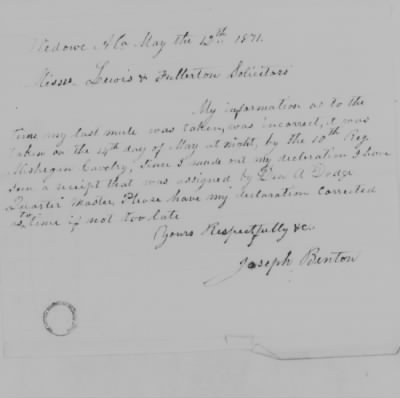 Wedowe Ala May the 12th 1871.
Missrs Lewis & Fullerton Solicitors
My information as to the
time my last mule was taken, was incorrect, it was
taken on the 14th day of May at night, by the 10th Reg
Mishegan Cavelry, since I made out my declaration I have
seen a receipt that was assigned by A Dodge
Quarter Master, Please have my declaration corrected
as to time if not too late
Yours Respectfully &c.
Joseph Benton